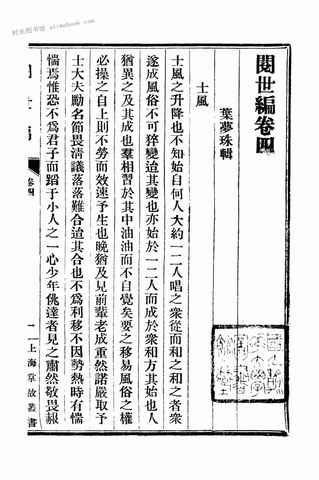 閱世編卷四
葉夢珠輯
士風
士風之升降也不知始自何人大約一二人唱之衆從而和之和之者衆
遂成風俗不可猝變迨其變也亦始於一二人而成於衆和方其始也人
猶異之及其成也羣相習於其中油油而不自覺矣要之移易風俗之權
必操之自上則不勞而效速予生也晚猶及見前輩老成重然諾嚴取予
士大夫勵名節畏清議落落難合迨其合也不爲利移不因勢熱時有惴
惴焉惟恐不爲君子而蹈于小人之一心少年佻達者見之肅然敬畏報
卷四
一
上海掌故叢書